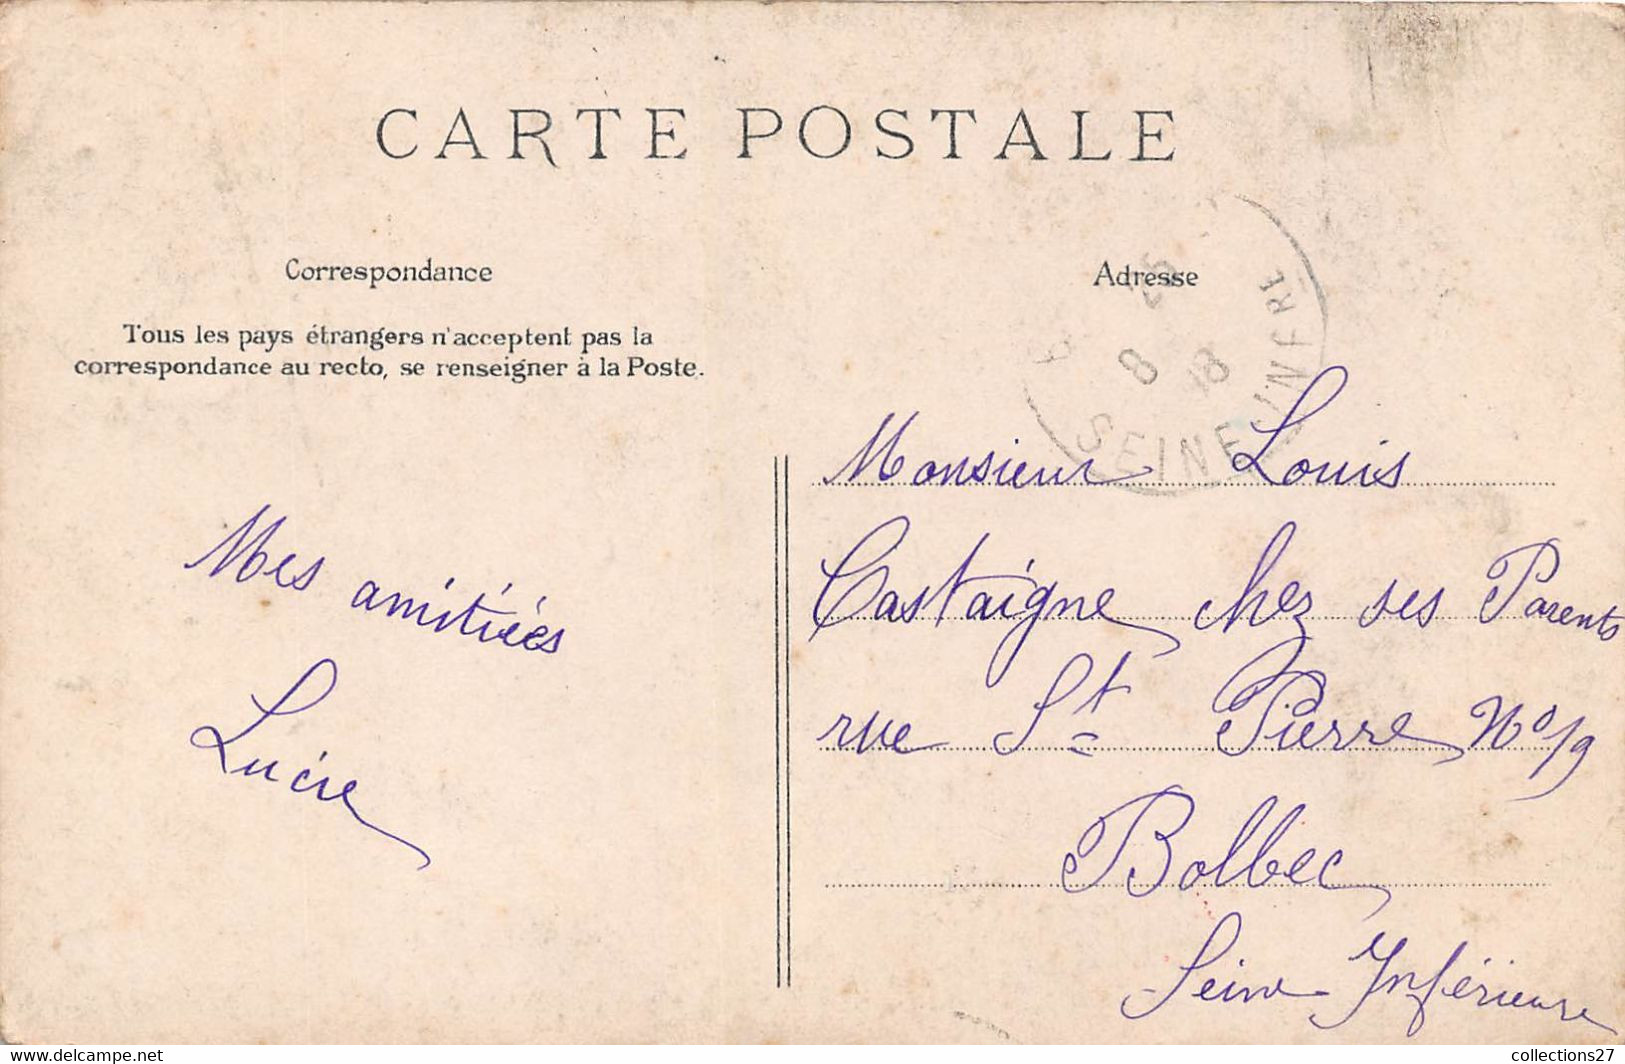 CARTE POSTALE
Correspondance
Tous les pays étrangers n'acceptent pas la
correspondance au recto, se renseigner à la Poste.
Mes amitiées
Lucie
Adresse
8 18
SEINE INFRE
Monsieur Louis
Castaigne chez ses Parents
rue St Pierre No 9
Bolbec
Seine Inférieure
collections27